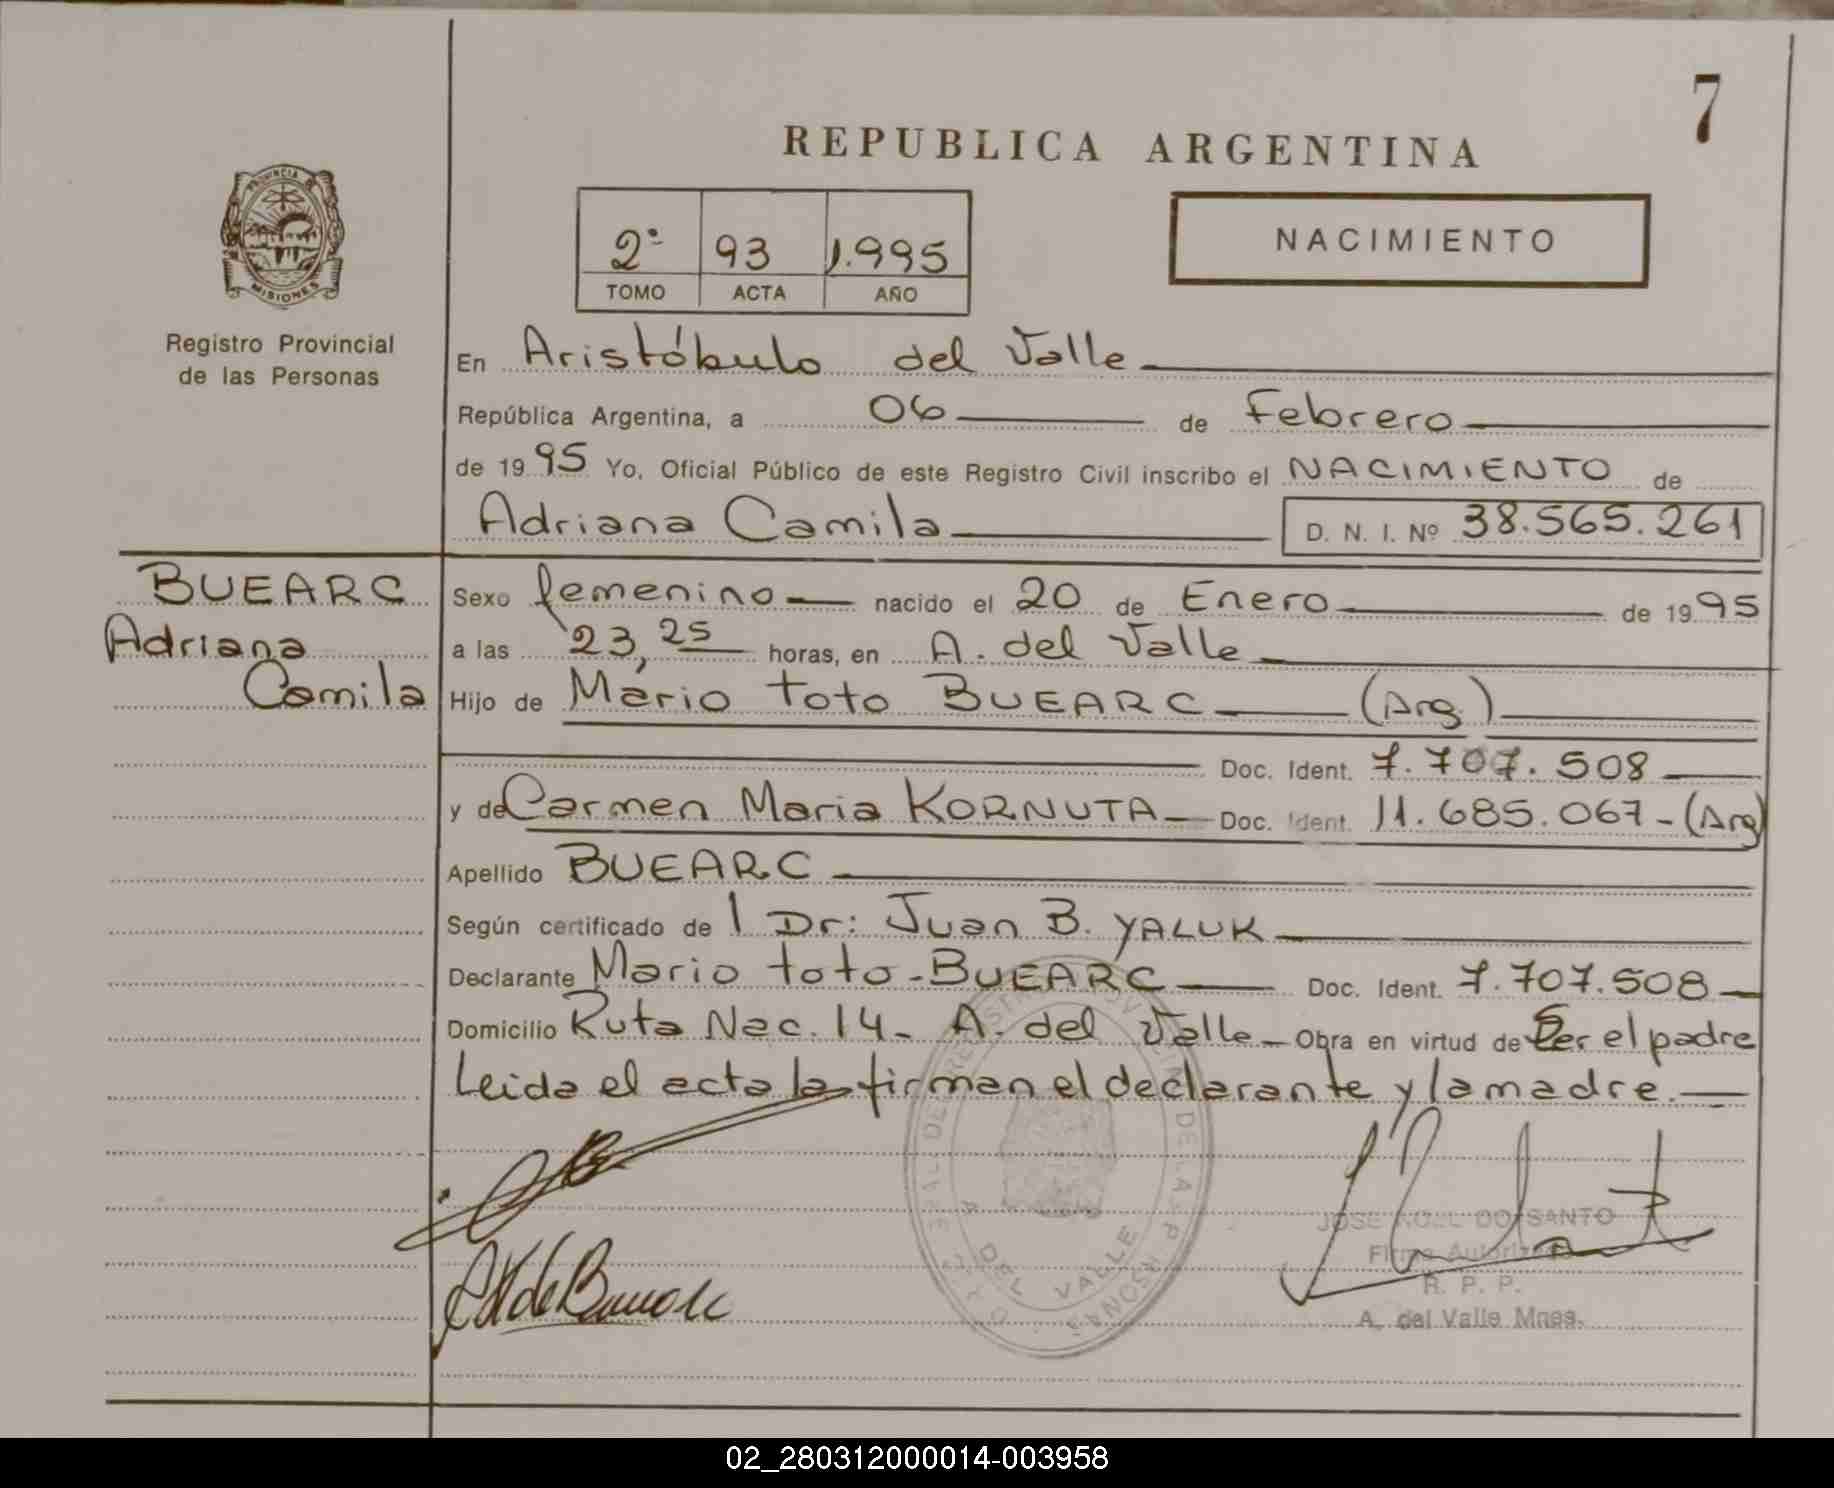 7
REPUBLICA ARGENTINA
PROVINCIA D
MISIONES
Registro Provincial
de las Personas
NACIMIENTO
2º 93 1.995
TOMO ACTA AÑO
En Aristóbulo del Valle
República Argentina, a 06 de Febrero
de 1995 Yo, Oficial Público de este Registro Civil inscribo el NACIMIENTO de
Adriana Camila D. N. I. Nº 38.565.261
BUEARC
Adriana
Camila
Sexo femenino nacido el 20 de Enero de 1995
a las 23,25 horas, en A. del Valle
Hijo de Mario toto BUEARC (Arg)
Doc. Ident. 7.707.508
y de Carmen Maria KORNUTA Doc. Ident. 11.685.067-(Arg)
Apellido BUEARC
Según certificado de l Dr: Juan B. YALUK
Declarante Mario toto-BUEARC Doc. Ident. 7.707.508
Domicilio Ruta Nac. 14- A. del Valle Obra en virtud de Ser el padre
Leida el acta la firman el declarante y la madre.
A. DEL VALLE
JOSE NOEL DO SANTO
Firma Autorizada
R. P. P.
A. del Valle Mnes.
02_280312000014-003958